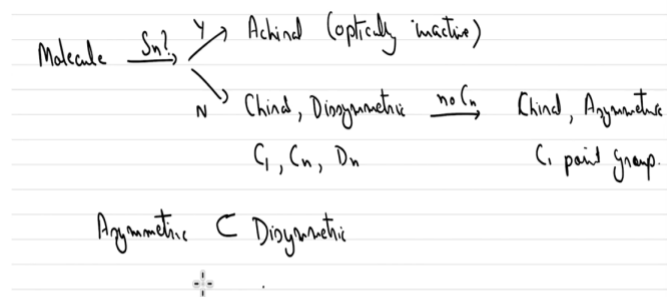 Y Achiral (optically inactive)
Molecule Sn? →
N Chiral, Dissymmetric no Cn → Chiral, Asymmetric
C₁, Cn, Dn C₁ point group.
Asymmetric ⊂ Disymmetric